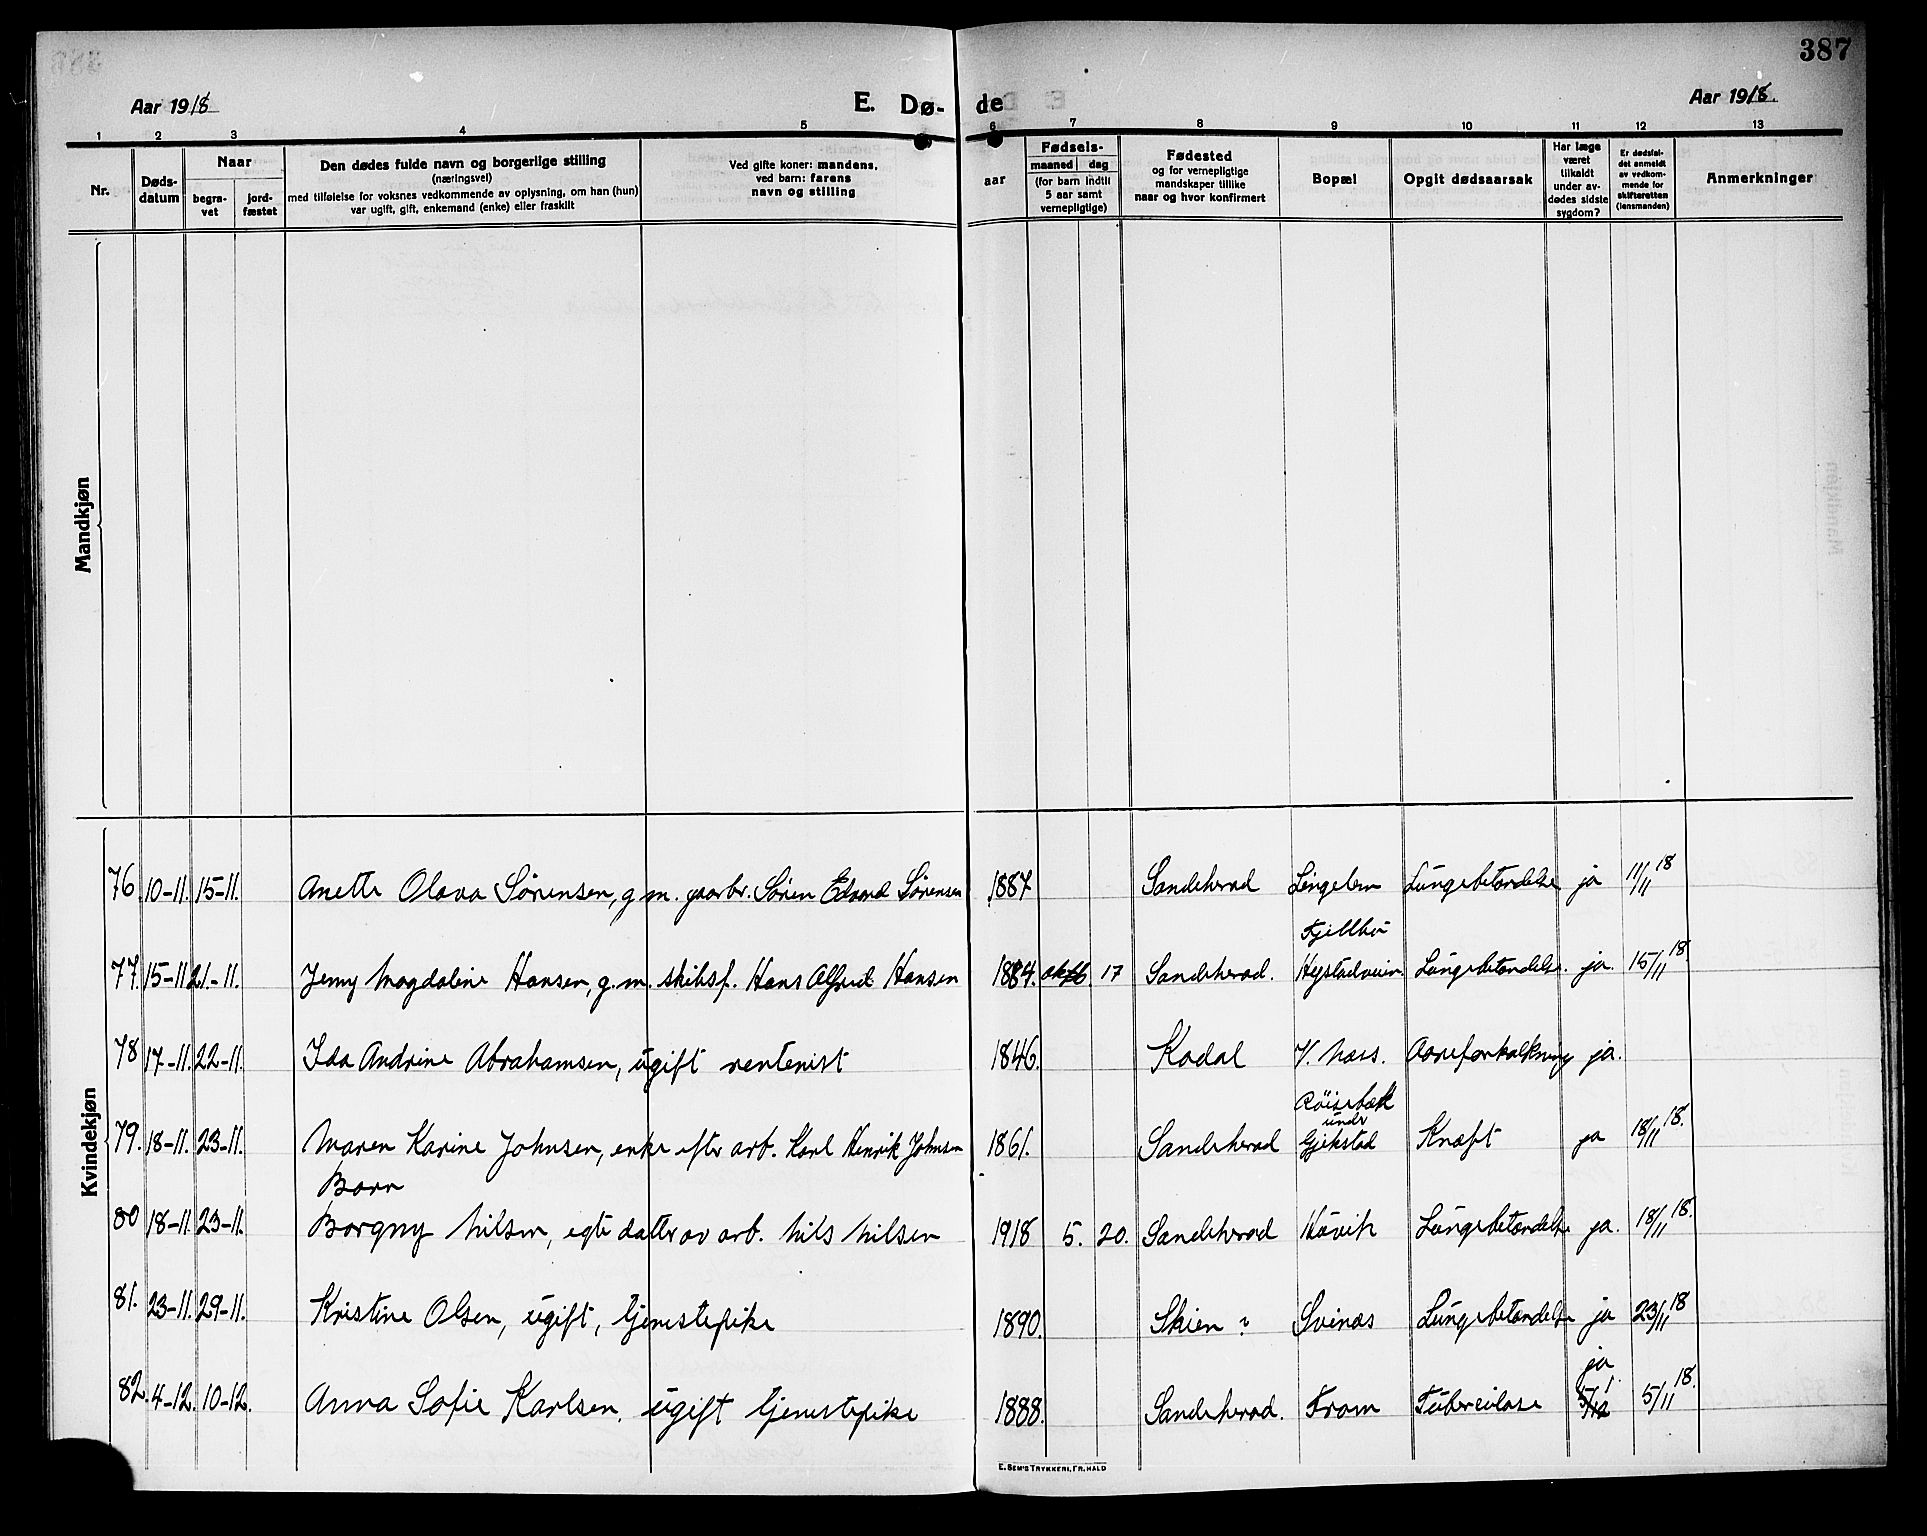 387
Aar 1918
E. Dø-
de
Aar 1918.
1 2 3 4 5 6 7 8 9 10 11 12 13
Nr.
Døds-
datum
Naar
begra-
vet
jord-
fæstet
Den dødes fulde navn og borgerlige stilling
(næringsvei)
med tilføielse for voksnes vedkommende av oplysning, om han (hun)
var ugift, gift, enkemand (enke) eller fraskilt
Ved gifte koner: mandens,
ved barn: farens
navn og stilling
aar
Fødsels-
maaned dag
(for barn indtil
5 aar samt
vernepligtige)
Fødested
og for vernepligtige
mandskaper tillike
naar og hvor konfirmert
Bopæl
Opgit dødsaarsak
Har læge
været
tilkaldt
under av-
dødes sidste
sygdom?
Er dødsfal-
det anmeldt
av vedkom-
mende for
skifteretten
(lensmanden)
Anmerkninger
Mandkjøn
Kvindekjøn
76 10-11. 15-11. Anette Olava Sørensen, g. m. gaarbr. Søren Edvard Sørensen 1887 Sandeherad Lingelem Lungebetændelse ja 11/11 18
Fjellbo
77. 15-11 21-11. Jenny Magdaline Hansen, g. m. skibsf. Hans Alfred Hansen 1884. oktb. 17 Sandeherad. Hystadveien. Lungebetændelse. ja. 15/11 18
78 17-11. 22-11. Ida Andrine Abrahamsen, ugift rentenist 1846. Kodal V. Næss. Aareforkalkning ja.
Röisebæk
under
79. 18-11. 23-11. Maren Karine Johnsen, enke efter arb. Karl Henrik Johnsen 1861. Sandeherad Gjekstad Kræft ja 18/11 18.
Barn
80 18-11. 23-11. Borgny Nilsen, egte datter av arb. Nils Nilsen 1918 5. 20. Sandeherad Hāvik Lungebetændelse ja. 18/11 18.
81. 23-11. 29-11. Kristine Olsen, ugift, tjenestepike 1890. Skien ? Svines Lungebetændelse ja 23/11 18
ja
82. 4-12. 10-12. Anna Sofie Karlsen. ugift tjenestepike 1888. Sandeherad. Fram Tuberculose 5/12 5/11 18.
E. SEM'S TRYKKERI, FR.HALD